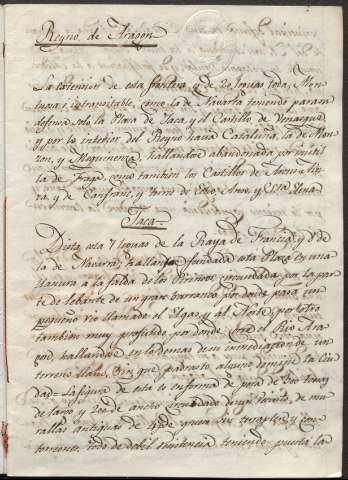 Reyno de Aragon
La extension de esta frontera es de 20 leguas toda, Mon-
tuosa e intransitable, como la de Navarra teniendo para su
defensa solo la Plaza de Jaca, y el Castillo de Venasque
y por lo interior del Reyno hacia Cataluña, la de Mon-
zon, y Mequinenza hallandose abandonada por inutil
la de Fraga, como tambien los Castillos de
y de Canfranc, y
Jaca
Dista esta 7 leguas de la Raya de Francia, y 8 de
la de Navarra; hallase fundada esta Plaza en una
llanura a la falda de los Pirineos circundada por la par-
te de lebante de un gran barranco por donde pasa un
pequeño rio llamado el Elgas, y al Norte, por otro
tambien muy profundo por donde corre el Rio Ara-
gon, hallandose en lo demas de su inmediacion, de un
terreno llano, sin que padrasto alguno domine la Ciu-
dad. La figura de esta es en forma de pera de 300 tomas
de largo, y 200 de ancho, circundado de un recinto, de mu-
rallas antiguas de 4 pies grueso sus torreones, y con-
torneno, todo de debil resistencia teniendo puesta la